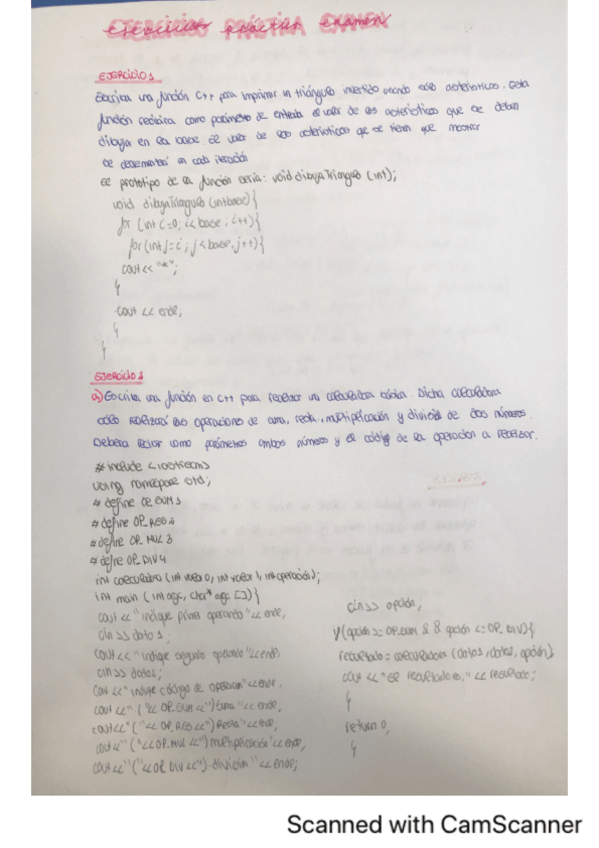 EJERCICIOS PRÁCTICA EXAMEN
EJERCICIO 1
Escriba una función C++ para imprimir un triángulo invertido usando solo asteriscos. Esta
función recibirá como parámetro de entrada el valor de los asteriscos que se deben
dibujar en la base. El valor de los asteriscos que se tienen que mostrar
se decrementará en cada iteración
El prototipo de la función sería: void dibujaTriangulo (int);
void dibujaTriangulo (int base){
for (int i=0; i< base; i++){
for (int j=i; j< base, j++){
cout<< "*";
}
cout << endl,
}
}
EJERCICIO 2
a) Escriba una función en C++ para realizar una calculadora básica. Dicha calculadora
sólo realizará las operaciones de suma, resta, multiplicación y división de dos números.
Deberá recibir como parámetros ambos números y el código de la operación a realizar.
# include <iostream>
using namespace std;
# define OP_SUM 1
# define OP_RES 2
# define OP_MUL 3
# define OP_DIV 4
int calculadora (int valor 0, int valor 1, int operación);
int main (int argc, char* argc []){
cout << "indique primer operando" << endl,
cin >> dato 1;
cout << "indique segundo operando" << endl,
cin >> dato 2;
cout << "indique código de operación" << endl,
cout << "(" << OP_SUM << ") Suma" << endl,
cout << "(" << OP_RES << ") Resta" << endl,
cout << "(" << OP_MUL << ") multiplicación" << endl,
cout << "(" << OP DIV << ") división" << endl;
cin >> opción;
if (opción >= OP_SUM && opción <= OP_DIV){
resultado = calculadora (dato1, dato2, opción)
cout << "El resultado es," << resultado;
}
return 0,
}
Scanned with CamScanner